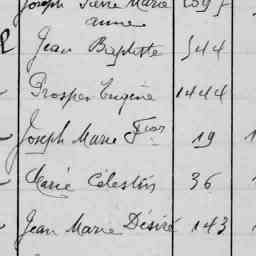 Joseph Pierre Marie
anne
Jean Baptiste 544
Prosper Eugène 1444
Joseph Marie Fçois 19 1
Marie Célestin 36 1
Jean Marie Désiré 143 1